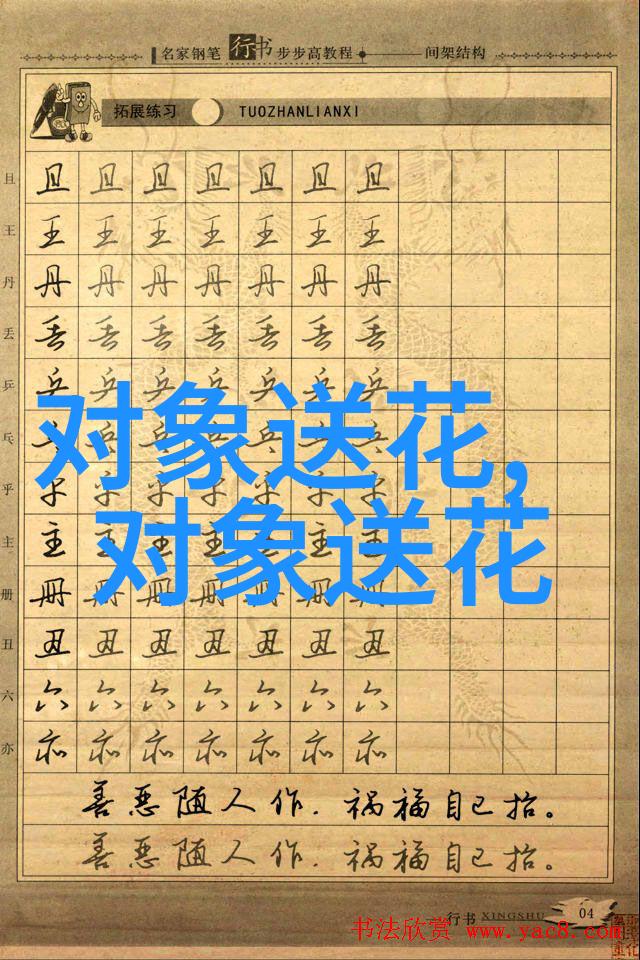 名家钢笔行书步步高教程 间架结构
拓展练习 TUOZHANLIANXI
且 且 且 且 且 且 且 且
王 王 王 王 王 王 王 王
丹 丹 丹 丹 丹 丹 丹 丹
丢 丢 丢 丢 丢 丢 丢 丢
乒 乒 乒 乒 乒 乒 乒 乒
对象送花,
乓 乓 乓 乓 乓 乓 乓 乓
乎 乎 乎 乎 乎 乎 乎 乎
主 主 主 主 主 主 主 主
对象送花
册 册 册 册 册 册 册 册
丑 丑 丑 丑 丑 丑 丑 丑
六 六 六 六 六 六 六 六
亦 亦 亦 亦 亦 亦 亦 亦
善恶随人作.祸福自己招。
善恶随人作.祸福自己招。
行书 XINGSHU 04
书法欣赏 www.yac8.com